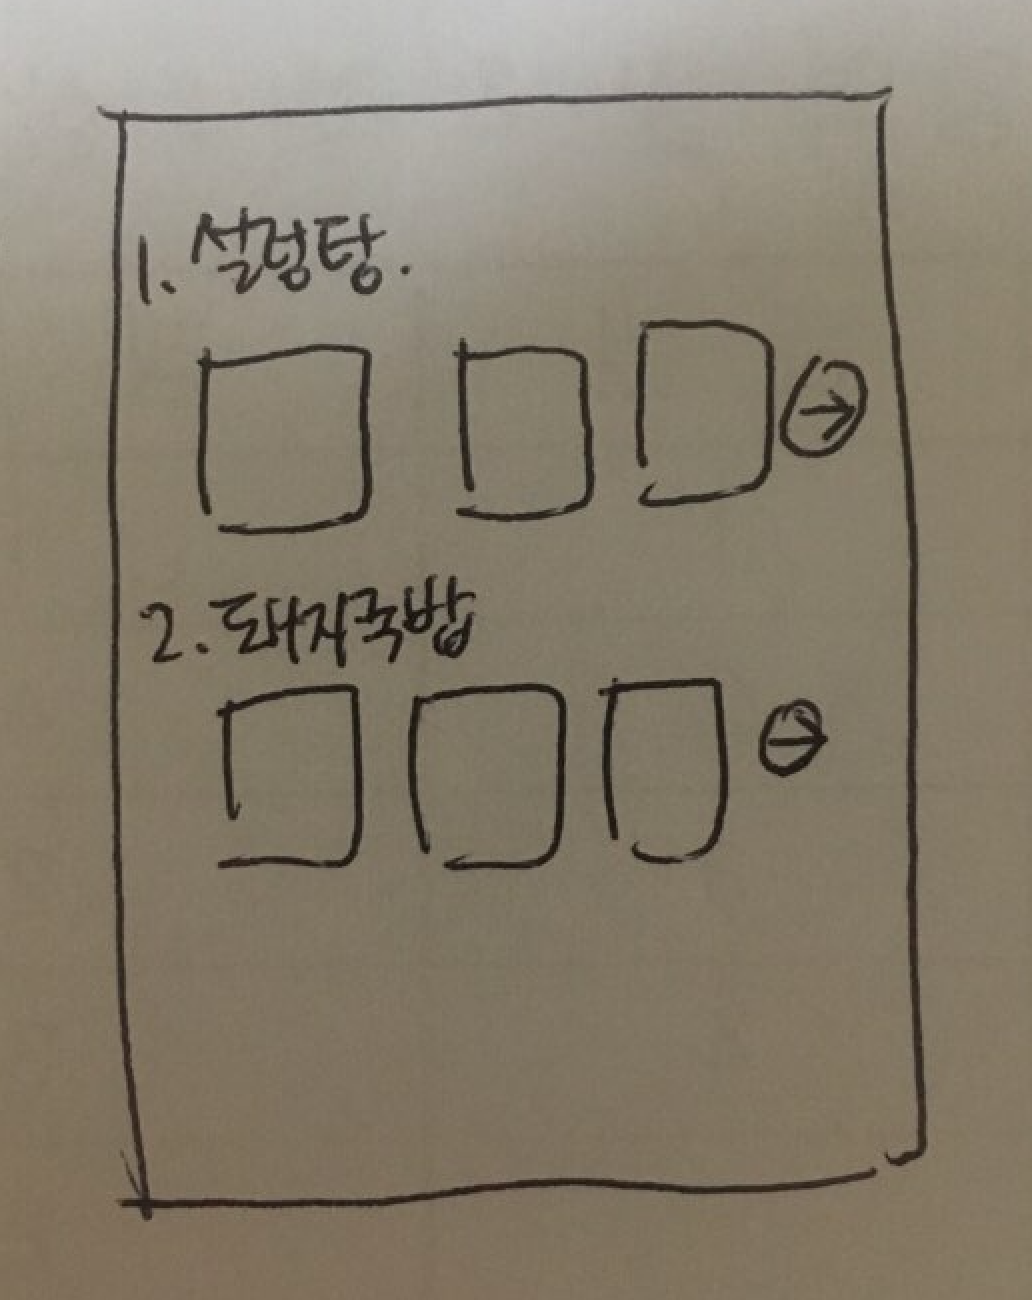 1. 설렁탕.
→
2. 돼지국밥
→